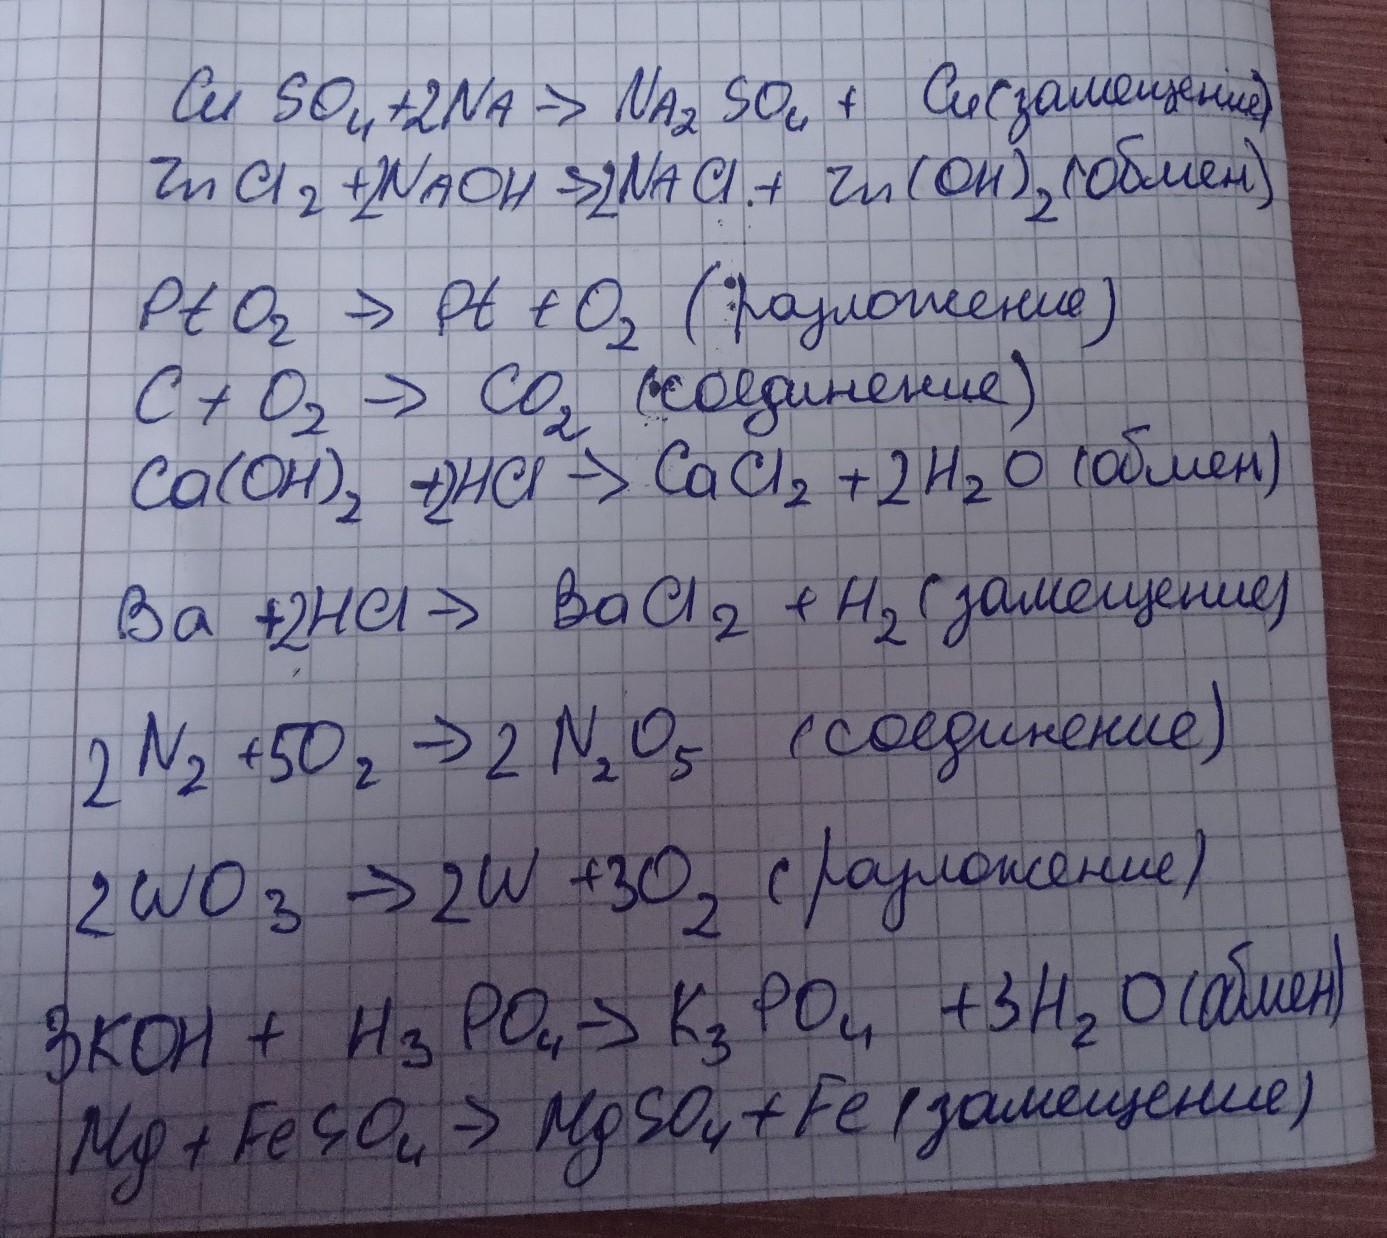 Cu SO₄ + 2NA → NA₂ SO₄ + Cu (замещение)
Zn Cl₂ + 2NAOH → 2NACl + Zn(OH)₂ (обмен)
Pt O₂ → Pt + O₂ (разложение)
C + O₂ → CO₂ (соединение)
Ca(OH)₂ + 2HCl → CaCl₂ + 2H₂O (обмен)
Ba + 2HCl → BaCl₂ + H₂ (замещение)
2N₂ + 5O₂ → 2N₂O₅ (соединение)
2WO₃ → 2W + 3O₂ (разложение)
3KOH + H₃PO₄ → K₃PO₄ + 3H₂O (обмен)
Mg + FeSO₄ → MgSO₄ + Fe (замещение)